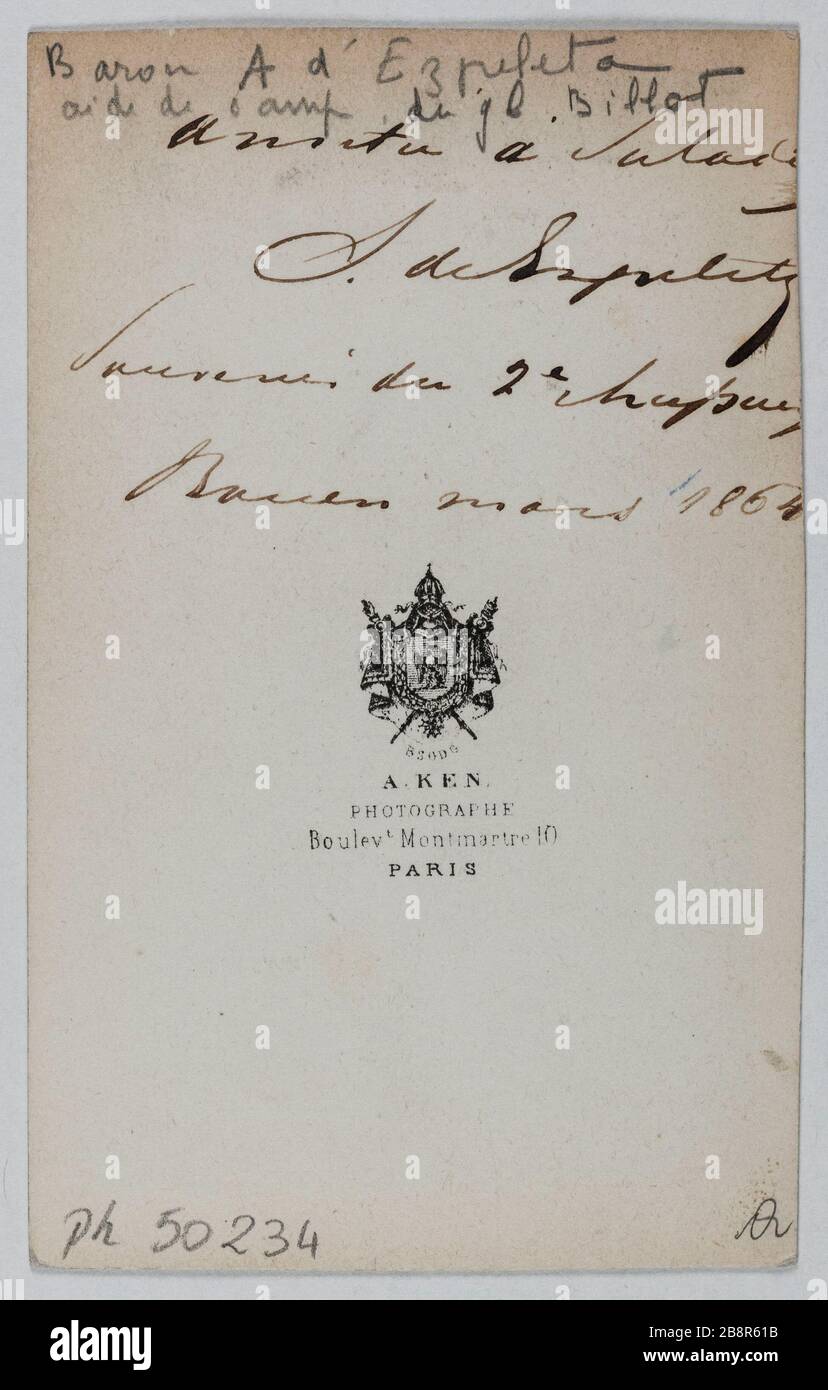 Baron A d'Ezpeleta
aide de camp du gl. Billot
à
S. de Ezpeleta
Souvenir du 2e
Rouen mars 1864
BSGDG
A. KEN.
PHOTOGRAPHE
Boulevt Montmartre 10
PARIS
Ph 50234
alamy
alamy
Image ID: 2B8R61B
www.alamy.com